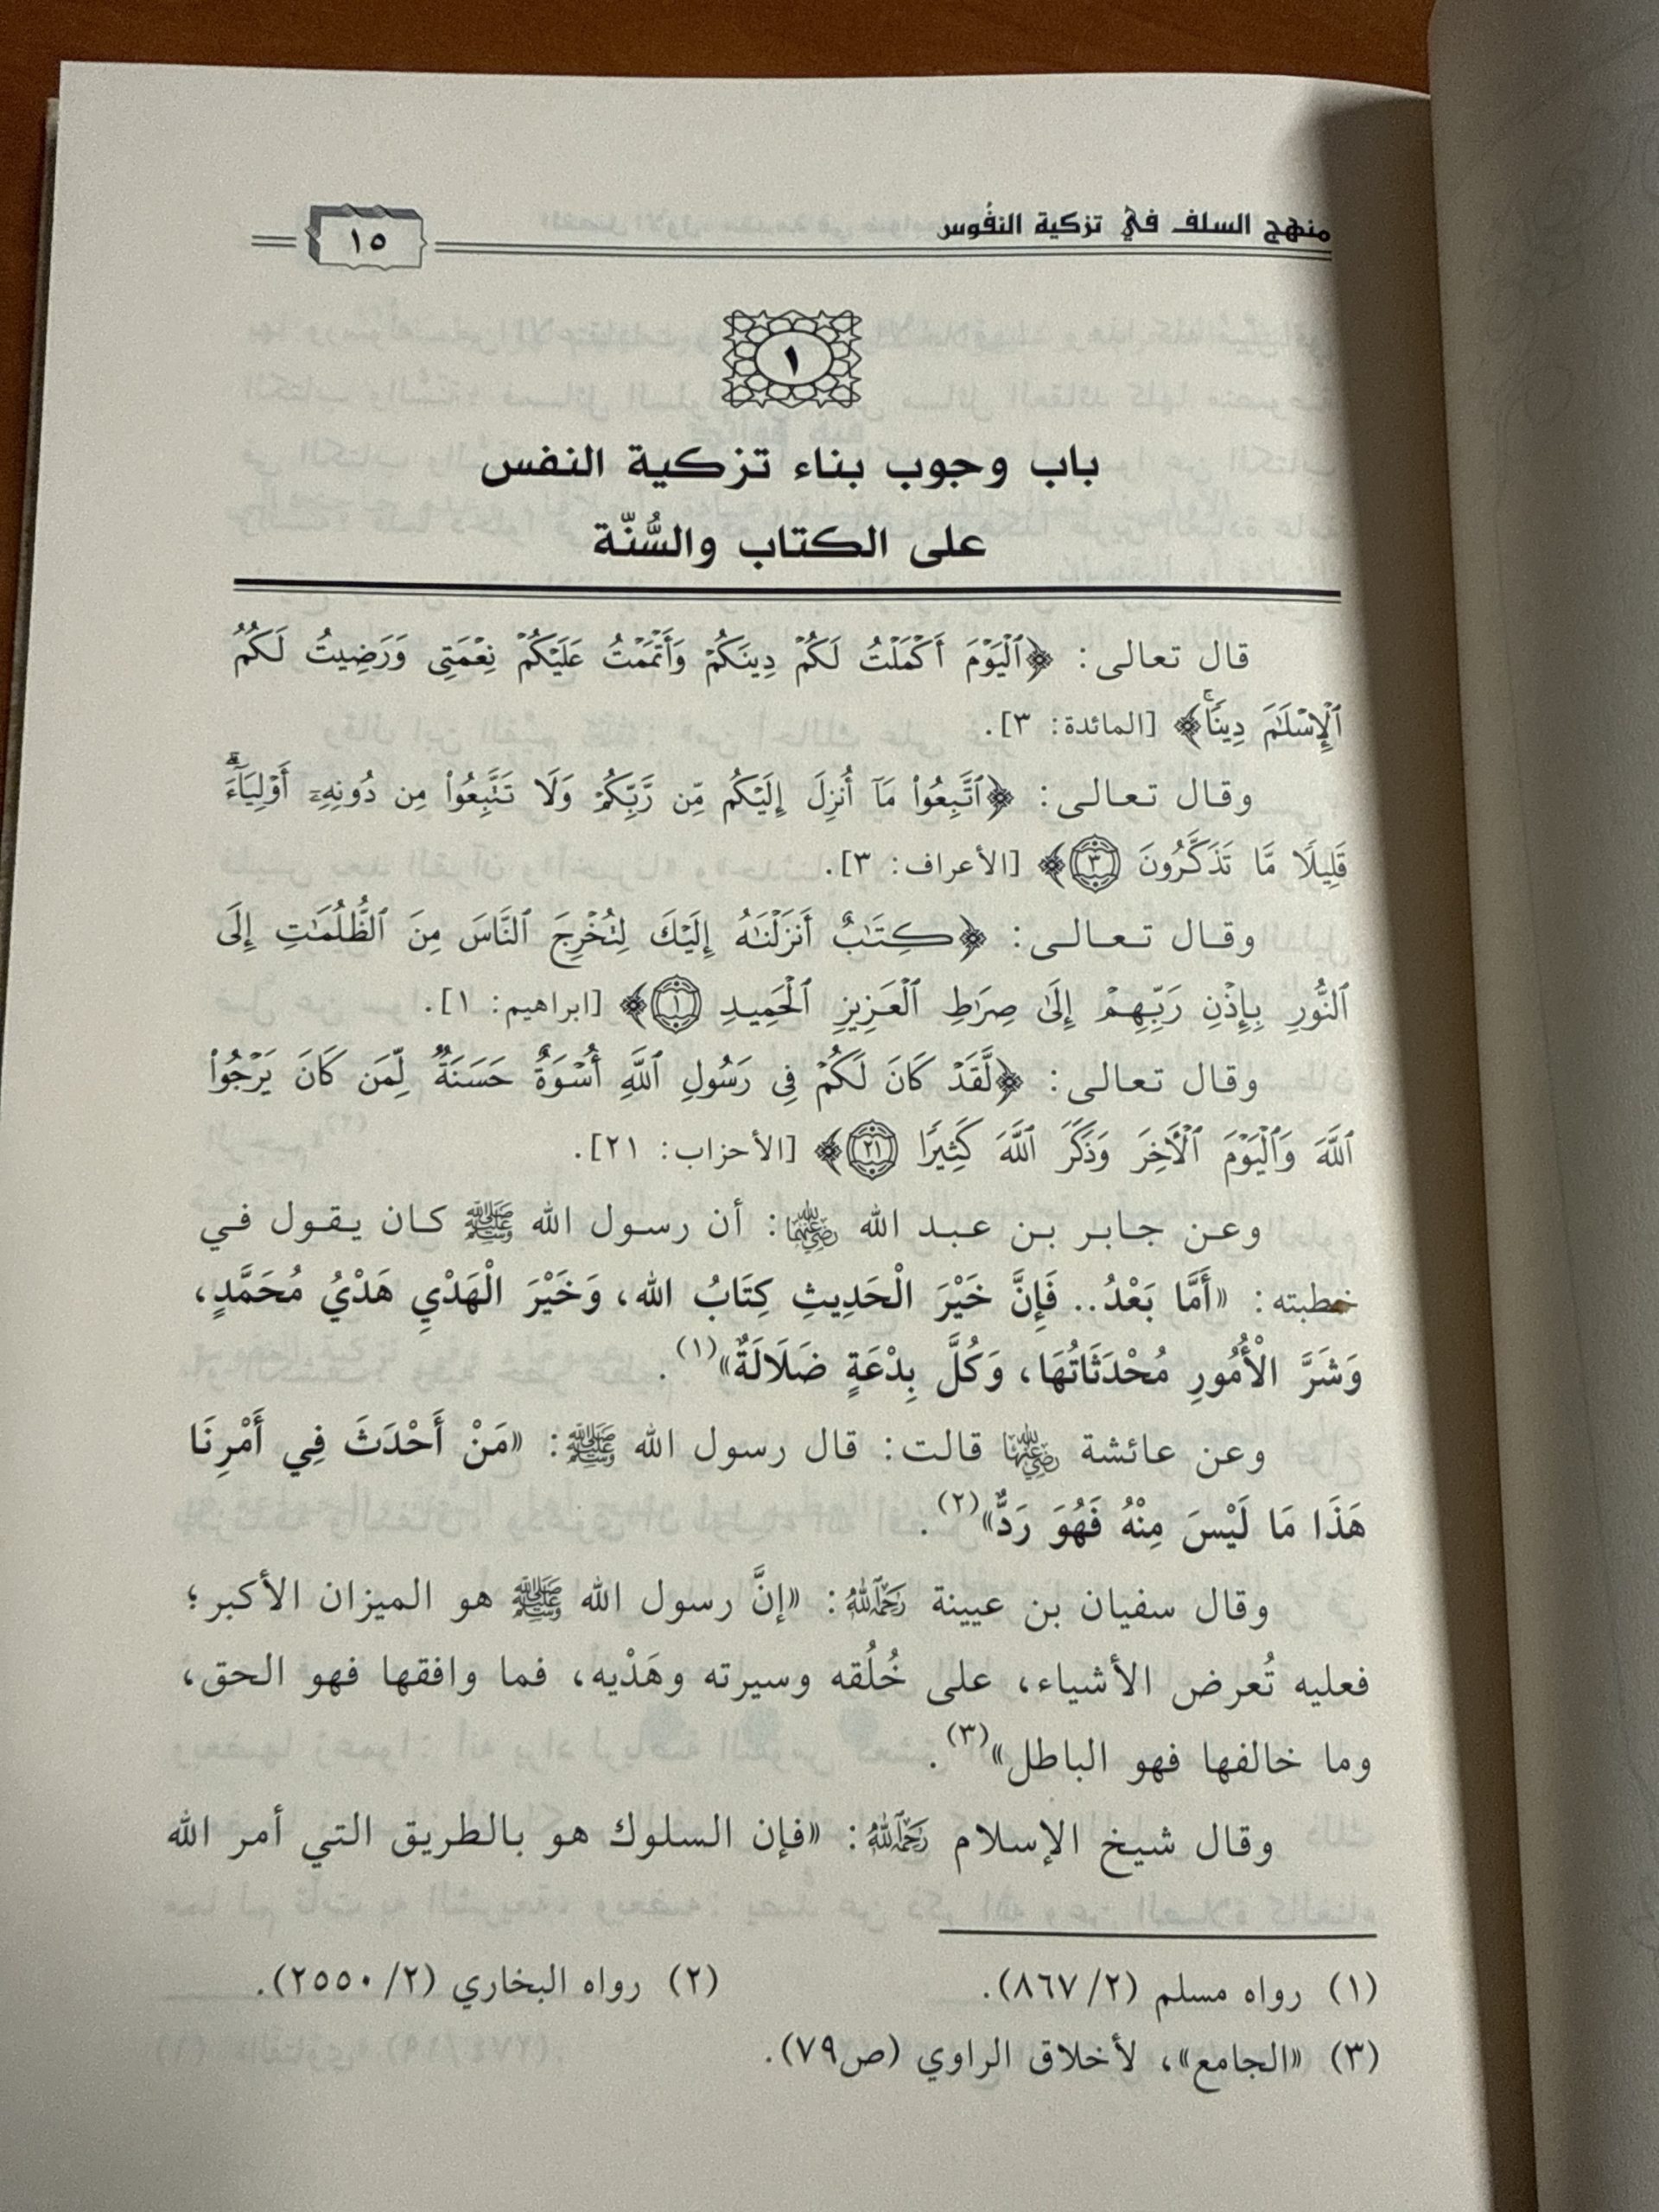 منهج السلف في تزكية النفُوس
١٥
١
باب وجوب بناء تزكية النفس
على الكتاب والسُّنّة
قال تعالى: ﴿ٱلۡيَوۡمَ أَكۡمَلۡتُ لَكُمۡ دِينَكُمۡ وَأَتۡمَمۡتُ عَلَيۡكُمۡ نِعۡمَتِي وَرَضِيتُ لَكُمُ
ٱلۡإِسۡلَٰمَ دِينٗاۚ﴾ [المائدة: ٣].
وقال تعالى: ﴿ٱتَّبِعُواْ مَآ أُنزِلَ إِلَيۡكُم مِّن رَّبِّكُمۡ وَلَا تَتَّبِعُواْ مِن دُونِهِۦٓ أَوۡلِيَآءَۗ
قَلِيلٗا مَّا تَذَكَّرُونَ ٣﴾ [الأعراف: ٣].
وقال تعالى: ﴿كِتَٰبٌ أَنزَلۡنَٰهُ إِلَيۡكَ لِتُخۡرِجَ ٱلنَّاسَ مِنَ ٱلظُّلُمَٰتِ إِلَى
ٱلنُّورِ بِإِذۡنِ رَبِّهِمۡ إِلَىٰ صِرَٰطِ ٱلۡعَزِيزِ ٱلۡحَمِيدِ ١﴾ [ابراهيم: ١].
وقال تعالى: ﴿لَّقَدۡ كَانَ لَكُمۡ فِي رَسُولِ ٱللَّهِ أُسۡوَةٌ حَسَنَةٞ لِّمَن كَانَ يَرۡجُواْ
ٱللَّهَ وَٱلۡيَوۡمَ ٱلۡأٓخِرَ وَذَكَرَ ٱللَّهَ كَثِيرٗا ٢١﴾ [الأحزاب: ٢١].
وعن جابر بن عبد الله رضي الله عنهما: أن رسول الله ﷺ كان يقول في
خطبته: «أَمَّا بَعْدُ.. فَإِنَّ خَيْرَ الْحَدِيثِ كِتَابُ الله، وَخَيْرَ الْهَدْيِ هَدْيُ مُحَمَّدٍ،
وَشَرَّ الْأُمُورِ مُحْدَثَاتُهَا، وَكُلَّ بِدْعَةٍ ضَلَالَةٌ»(١).
وعن عائشة رضي الله عنها قالت: قال رسول الله ﷺ: «مَنْ أَحْدَثَ فِي أَمْرِنَا
هَذَا مَا لَيْسَ مِنْهُ فَهُوَ رَدٌّ»(٢).
وقال سفيان بن عيينة رحمه الله: «إنَّ رسول الله ﷺ هو الميزان الأكبر؛
فعليه تُعرض الأشياء، على خُلُقه وسيرته وهَدْيه، فما وافقها فهو الحق،
وما خالفها فهو الباطل»(٣).
وقال شيخ الإسلام رحمه الله: «فإن السلوك هو بالطريق التي أمر الله
(١) رواه مسلم (٢/ ٨٦٧).
(٢) رواه البخاري (٢/ ٢٥٥٠).
(٣) «الجامع»، لأخلاق الراوي (ص٧٩).